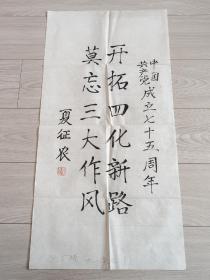 中国
共产党成立七十五周年
开拓四化新路
莫忘三大作风
夏征农